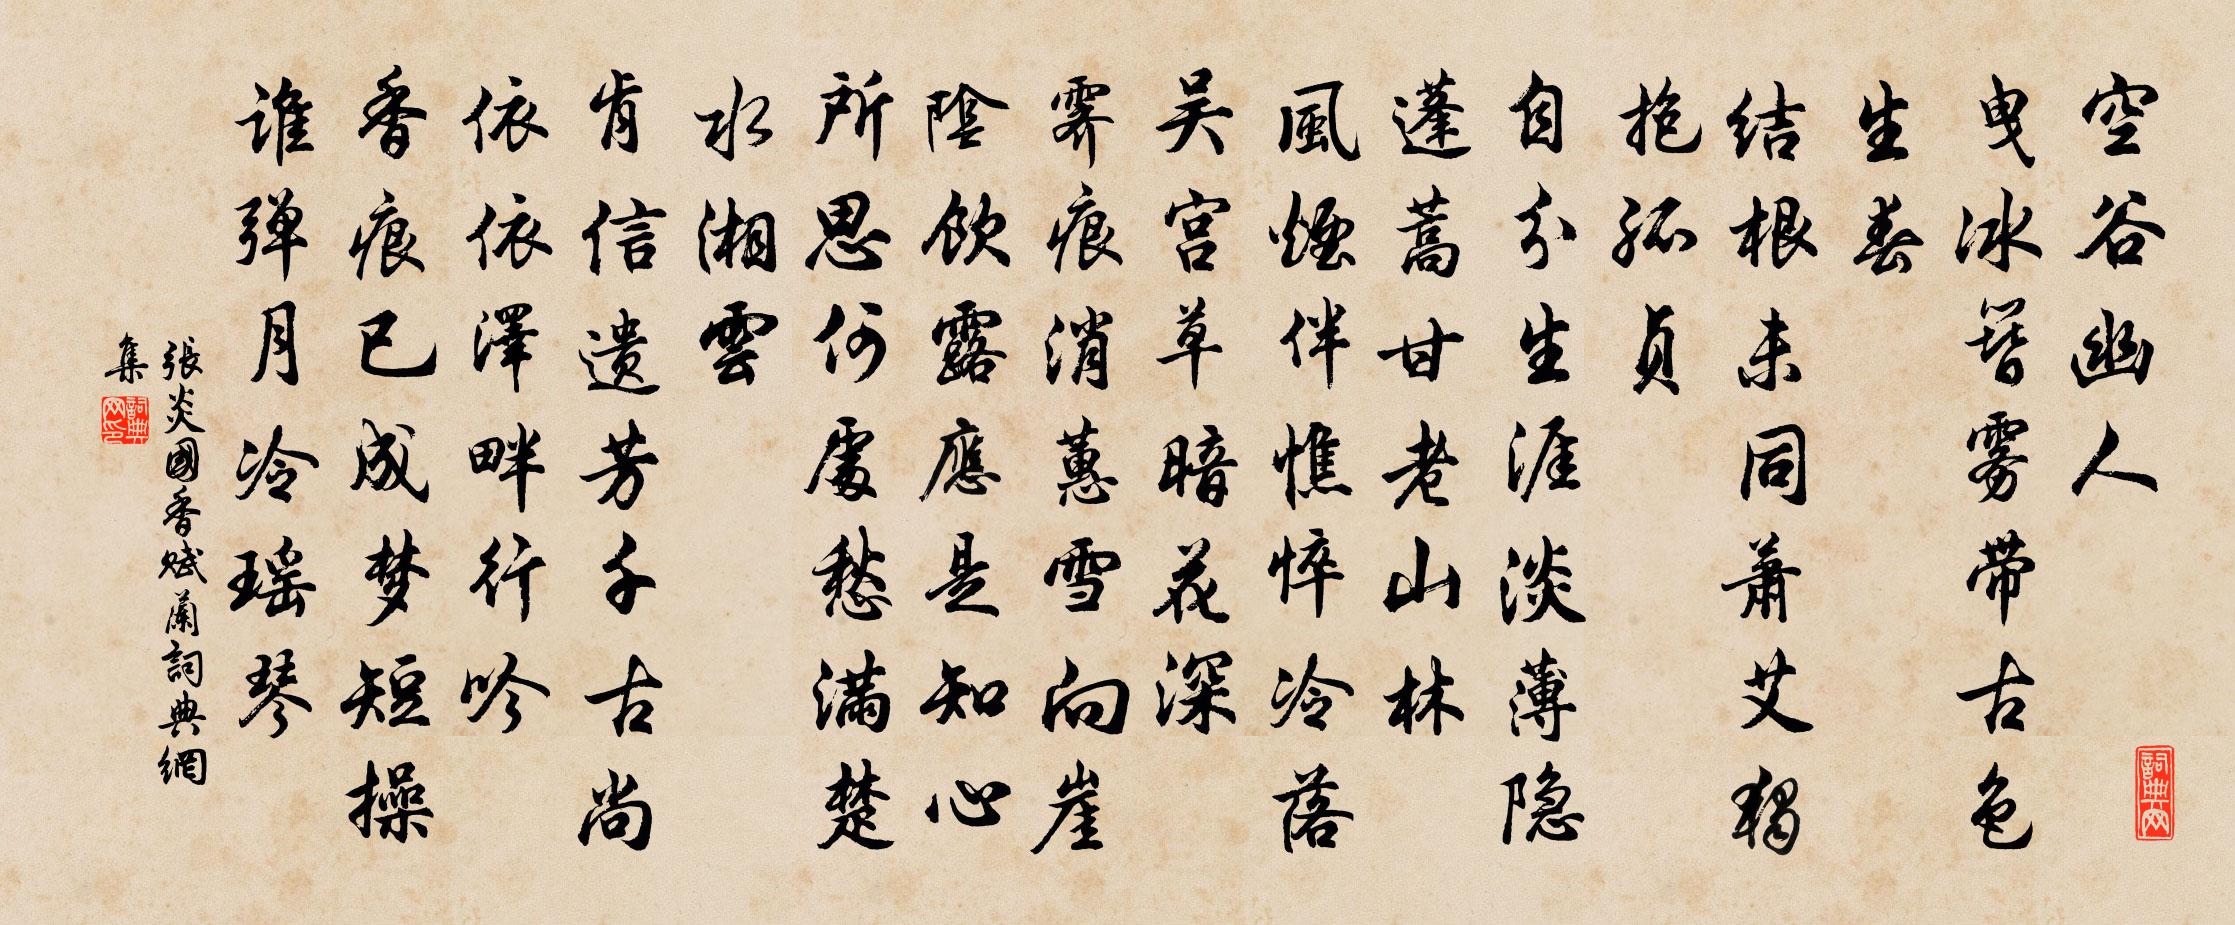 空谷幽人
曳冰簪雾带古色
生春
结根未同萧艾獨
抱孤贞
自分生涯淡薄隐
蓬蒿甘老山林
風煙伴憔悴冷落
吴宫草暗花深
霁痕消蕙雪向崖
陰飲露應是知心
所思何處愁满楚
水湘雲
肯信遗芳千古尚
依依澤畔行吟
香痕已成梦短操
谁弹月冷瑶琴
張炎國香赋蘭詞典網
集
詞典网印
詞典网